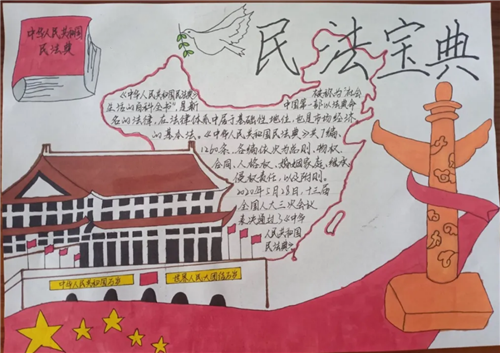 民法宝典
中华人民共和国
民法典
《中华人民共和国民法典》被称为"社会
生活的百科全书",是新中国第一部以法典命
名的法律,在法律体系中居于基础性地位,也是市场经济
的基本法。《中华人民共和国民法典》共7编、
1260条,各编依次为总则、物权、
合同、人格权、婚姻家庭、继承、
侵权责任,以及附则。
2020年5月28日,十三届
全国人大三次会议
表决通过了《中华
人民共和国
民法典》
中华人民共和国万岁
世界人民大团结万岁